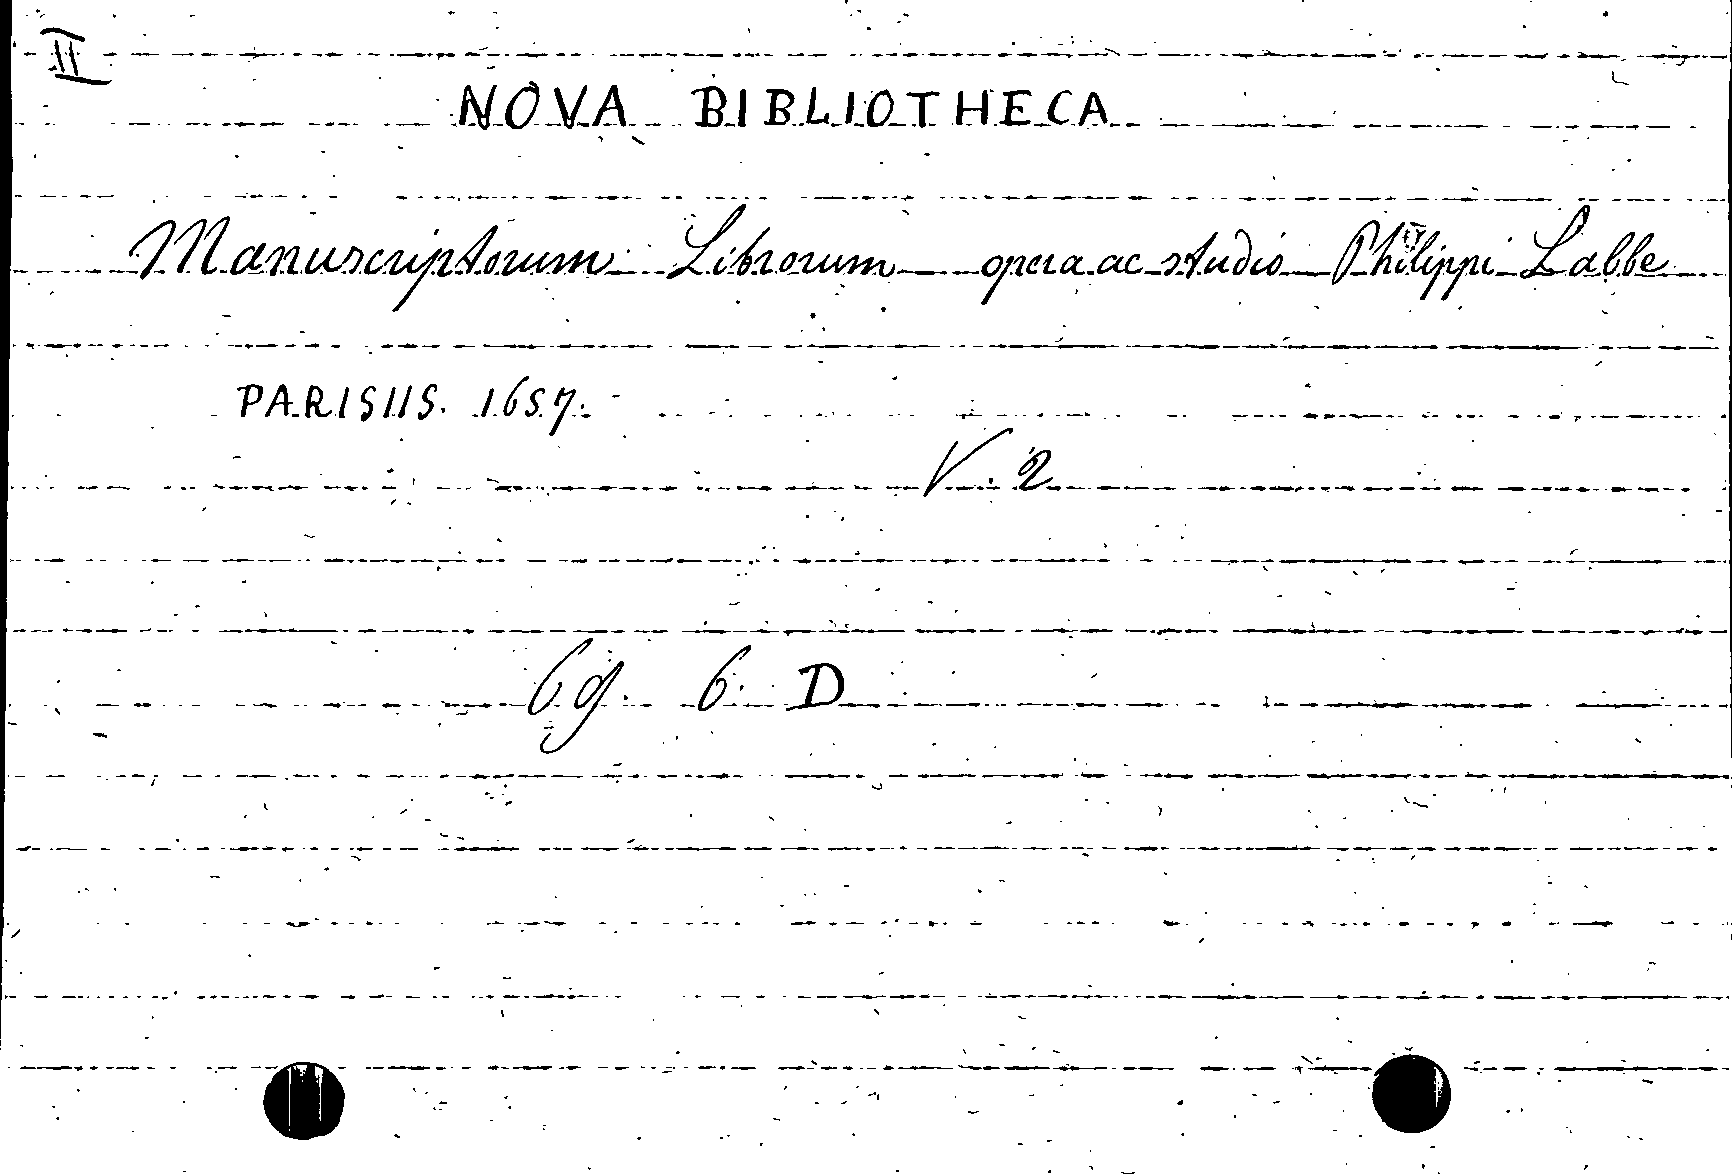 II
NOVA BIBLIOTHECA
Manuscriptorum Librorum opera ac studio Philippi Labbe
PARISIIS. 1657.
V. 2
69. 6. D